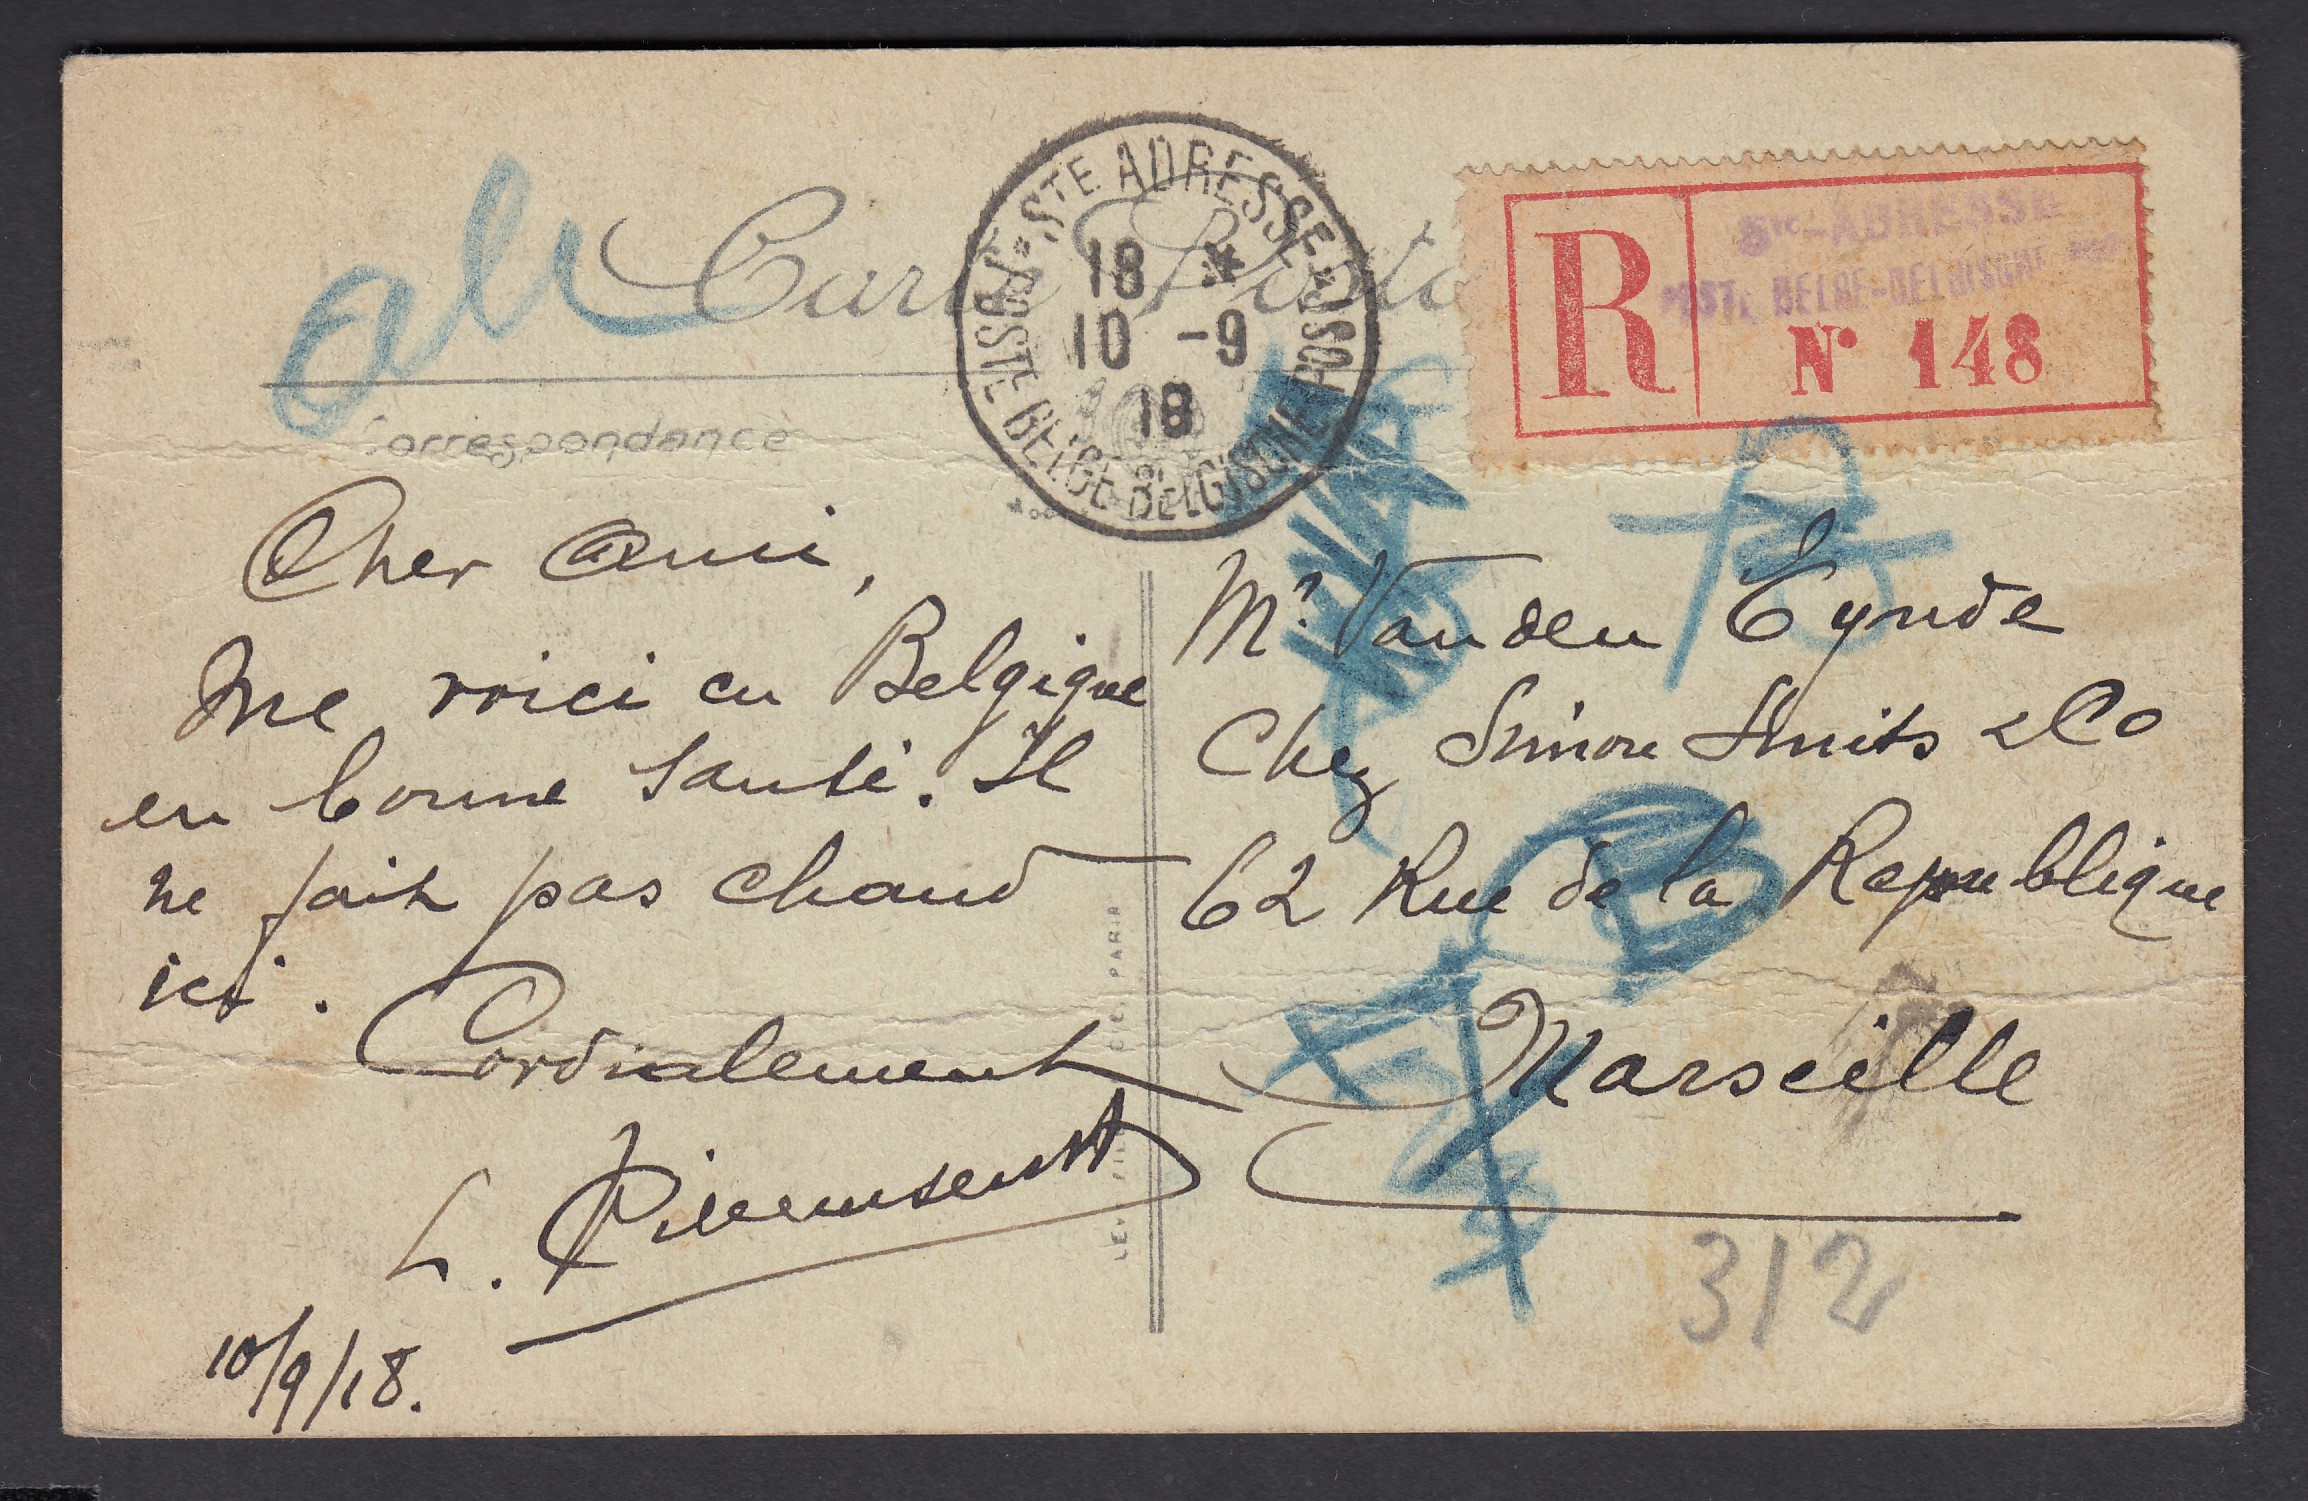 Carte Posta
Correspondance
STE ADRESSE
POSTE BELGE-BELGISCHE POST
18 *
10 -9
18
Ste-ADRESSE
POSTE BELGE-BELGISCHE POST
R
N° 148
Cher ami,
Me voici en Belgique
en bonne santé. Il
ne fait pas chaud
ici.
Cordialement
L.
10/9/18.
Mr. Vanden Eynde
Chez Simon Smits & Co
62 Rue de la Republique
Marseille
312
PARIS
R